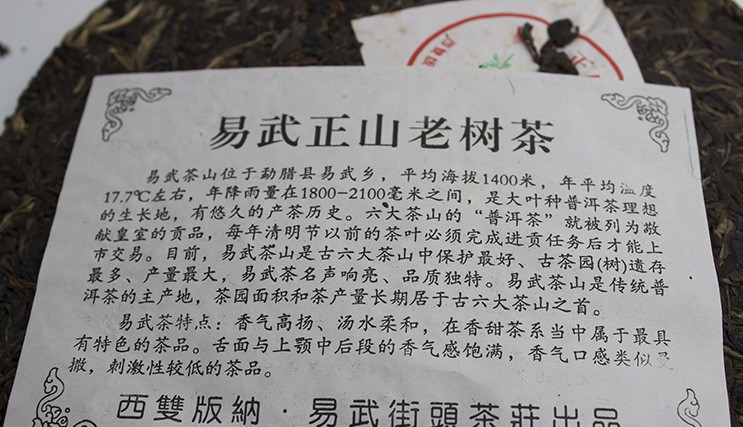 易武正山老树茶
易武茶山位于勐腊县易武乡，平均海拔1400米，年平均温度
17.7℃左右，年降雨量在1800-2100毫米之间，是大叶种普洱茶理想
的生长地，有悠久的产茶历史。六大茶山的“普洱茶”就被列为敬
献皇室的贡品，每年清明节以前的茶叶必须完成进贡任务后才能上
市交易。目前，易武茶山是古六大茶山中保护最好、古茶园(树)遗存
最多、产量最大，易武茶名声响亮、品质独特。易武茶山是传统普
洱茶的主产地，茶园面积和茶产量长期居于古六大茶山之首。
易武茶特点：香气高扬、汤水柔和，在香甜茶系当中属于最具
有特色的茶品。舌面与上颚中后段的香气感饱满，香气口感类似曼
撒，刺激性较低的茶品。
西雙版納·易武街頭茶莊出品